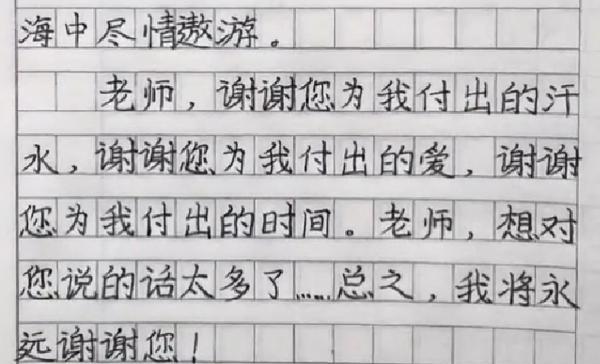 海中尽情遨游。
老师，谢谢您为我付出的汗
水，谢谢您为我付出的爱，谢谢
您为我付出的时间。老师，想对
您说的话太多了……总之，我将永
远谢谢您！